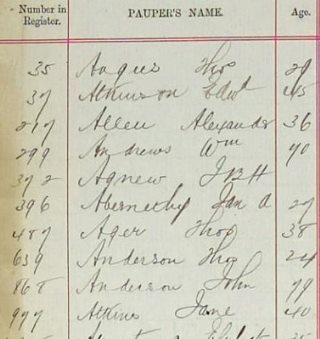 Number in Register. PAUPER'S NAME. Age.
35 Angus Thos 29
37 Atkinson Edwd 45
217 Allen Alexander 36
299 Andrews Wm 40
372 Agnew J B H
396 Abernethy Jan A 27
487 Ager Thos 38
639 Anderson Thos 24
868 Anderson John 79
977 Atkins Jane 40